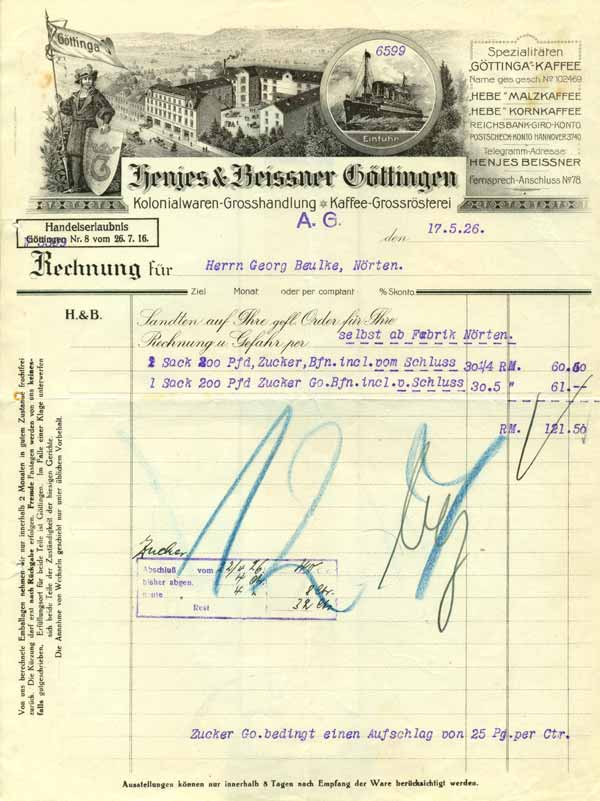 Göttinga
6599
Einfuhr
Spezialitäten
„GÖTTINGA"-KAFFEE
Name ges. gesch. No 102469
„HEBE" MALZKAFFEE
„HEBE" KORNKAFFEE
REICHSBANK-GIRO-KONTO
POSTSCHECK-KONTO HANNOVER 3740
Telegramm-Adresse:
HENJES BEISSNER
Fernsprech-Anschluss No 78.
Henjes & Beissner Göttingen
Kolonialwaren-Grosshandlung Kaffee-Grossrösterei
A. G.
Handelserlaubnis
Göttingen Nr. 8 vom 26. 7. 16.
den 17.5.26.
Rechnung für Herrn Georg Beulke, Nörten.
Ziel Monat oder per comptant % Skonto
H. & B.
Sandten auf Ihre gefl. Order für Ihre
Rechnung u. Gefahr per selbst ab Fabrik Nörten.
1 Sack 200 Pfd, Zucker, Bfn. incl. vom Schluss 30 1/4 RM. 60.50
1 Sack 200 Pfd Zucker Go. Bfn. incl. v. Schluss 30.5 " 61.--
RM. 121.50
Zucker
Abschluß vom
bisher abgen.
heute
Rest
8 Ctr.
32 Ctr
Von uns berechnete Emballagen nehmen wir nur innerhalb 2 Monaten in gutem Zustand fruchtfrei
zurück. Die Kürzung darf erst nach Rückgabe erfolgen. Fremde Fastagen werden von uns keines-
falls gutgeschrieben. Erfüllungsort für beide Teile ist Göttingen. Im Falle einer Klage unterwerfen
sich beide Teile der Zuständigkeit der hiesigen Gerichte.
Die Annahme von Wechseln geschieht nur unter üblichem Vorbehalt.
Zucker Go. bedingt einen Aufschlag von 25 Pg. per Ctr.
Ausstellungen können nur innerhalb 8 Tagen nach Empfang der Ware berücksichtigt werden.